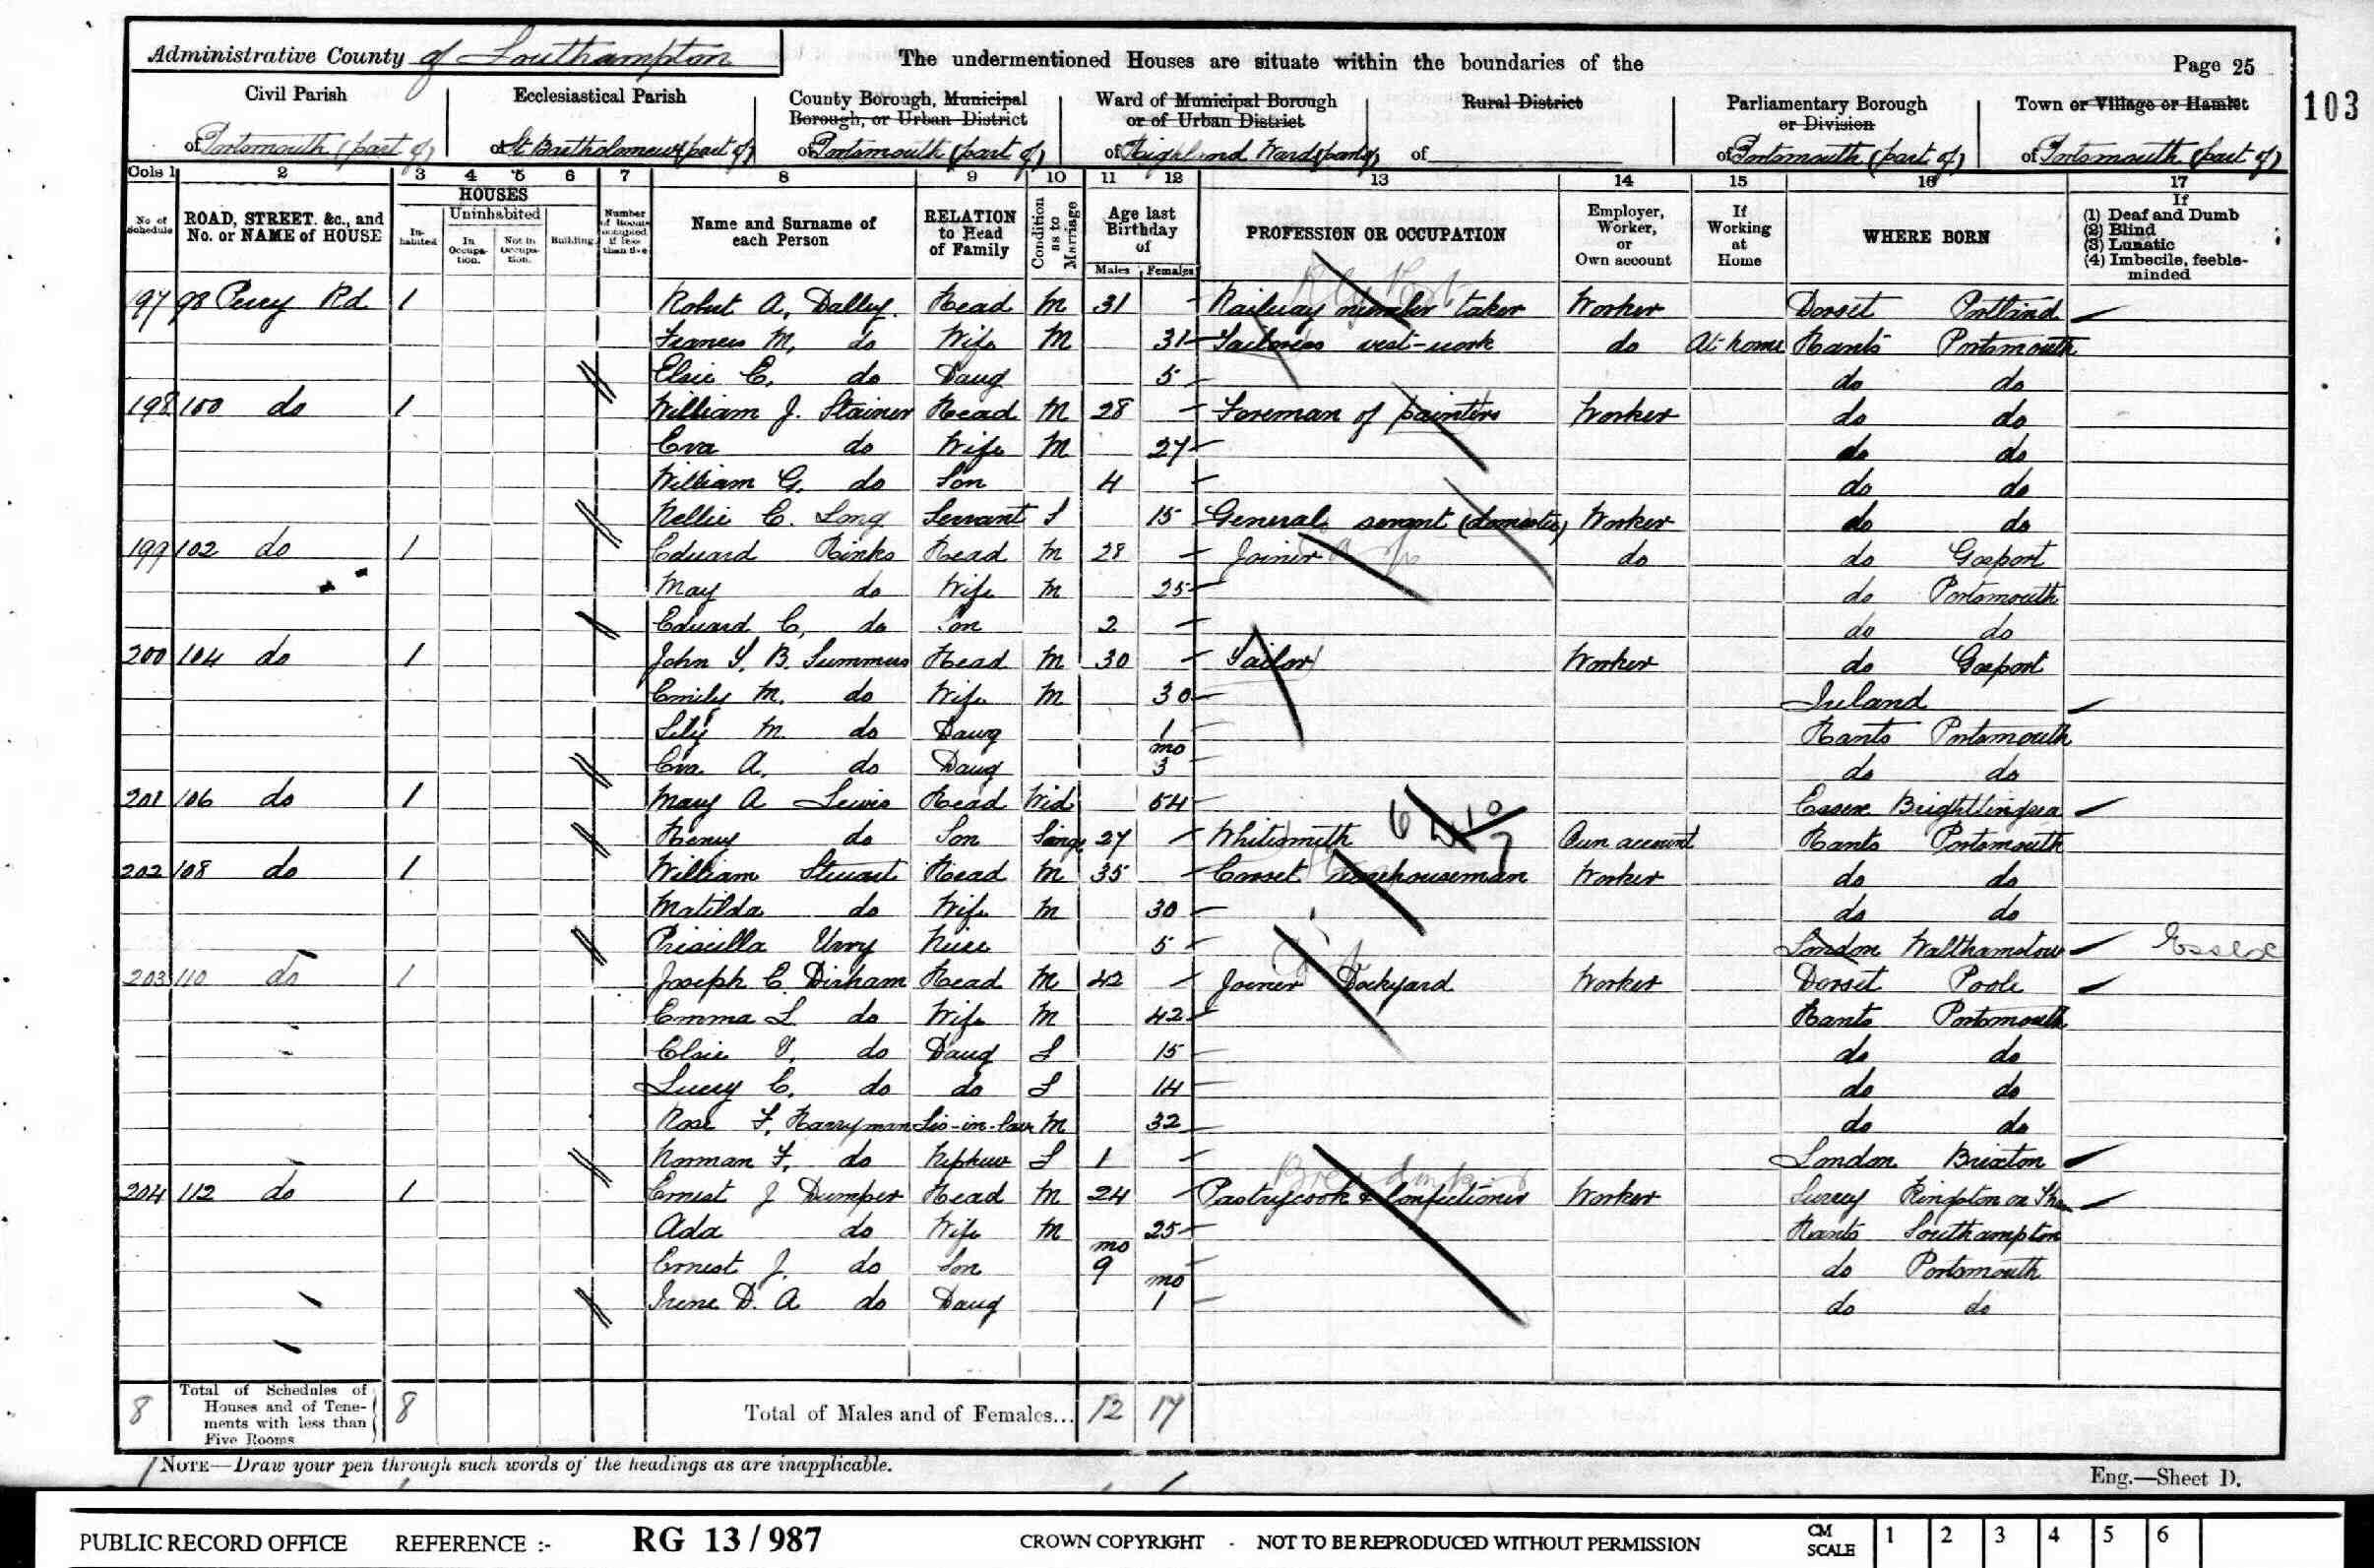 Administrative County of Southampton
The undermentioned Houses are situate within the boundaries of the
Page 25
103
Civil Parish
of Portsmouth (part of)
Ecclesiastical Parish
of St. Bartholomews (part of)
County Borough, Municipal
Borough, or Urban District
of Portsmouth (part of)
Ward of Municipal Borough
or of Urban District
of Highland Ward (part of)
Rural District
of
Parliamentary Borough
or Division
of Portsmouth (part of)
Town or Village or Hamlet
of Portsmouth (part of)
Cols 1 2 3 4 5 6 7 8 9 10 11 12 13 14 15 16 17
No of Schedule
ROAD, STREET. &c., and
No. or NAME of HOUSE
HOUSES
In-habited
Uninhabited
In Occupa-tion.
Not in Occupa-tion.
Building
Number of Rooms occupied if less than five
Name and Surname of
each Person
RELATION
to Head
of Family
Condition as to Marriage
Age last
Birthday
of
Males Females
PROFESSION OR OCCUPATION
Employer,
Worker,
or
Own account
If
Working
at
Home
WHERE BORN
If
(1) Deaf and Dumb
(2) Blind
(3) Lunatic
(4) Imbecile, feeble-
minded
197 98 Percy Rd 1 Robert A. Dalley Head M 31 Railway number taker Worker Dorset Portland
Frances M. do Wife M 31 Tailoress vest-work do At home Hants Portsmouth
Elsie E. do Daug 5 do do
198 100 do 1 William J. Stainer Head M 28 Foreman of painters Worker do do
Eva do Wife M 27 do do
William G. do Son 4 do do
Nellie E. Long Servant S 15 General servant (domestic) Worker do do
199 102 do 1 Edward Hinks Head M 28 Joiner do do Gosport
May do Wife M 25 do Portsmouth
Edward C. do Son 2 do do
200 104 do 1 John S. B. Summers Head M 30 Tailor Worker do Gosport
Emily M. do Wife M 30 Ireland
Lily M. do Daug 1 Hants Portsmouth
Eva A. do Daug mo 3 do do
201 106 do 1 Mary A Lewis Head Wid 54 Essex Brightlingsea
Henry do Son Single 27 Whitesmith Own account Hants Portsmouth
202 108 do 1 William Stewart Head M 35 Corset warehouseman Worker do do
Matilda do Wife M 30 do do
Priscilla Urry Niece 5 London Walthamstow Essex
203 110 do 1 Joseph C. Dirham Head M 42 Joiner Dockyard Worker Dorset Poole
Emma L. do Wife M 42 Hants Portsmouth
Elsie V. do Daug S 15 do do
Lucy C. do do S 14 do do
Rose F. Harryman Sis-in-law M 32 do do
Norman F. do Nephew S 1 London Brixton
204 112 do 1 Ernest J Dumper Head M 24 Pastrycook & Confectioner Worker Surrey Kingston on Tha
Ada do Wife M 25 Hants Southampton
Ernest J. do Son mo 9 do Portsmouth
Irene D. A do Daug mo 1 do do
8 Total of Schedules of
Houses and of Tene-
ments with less than
Five Rooms
8
Total of Males and of Females... 12 17
NOTE—Draw your pen through such words of the headings as are inapplicable.
Eng.—Sheet D.
PUBLIC RECORD OFFICE REFERENCE :- RG 13/987 CROWN COPYRIGHT - NOT TO BE REPRODUCED WITHOUT PERMISSION CM SCALE 1 2 3 4 5 6